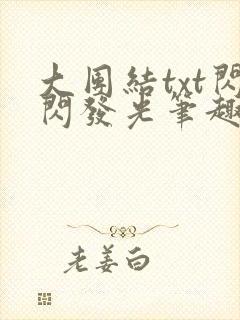 大團結txt閃
閃發光筆趣
老姜白